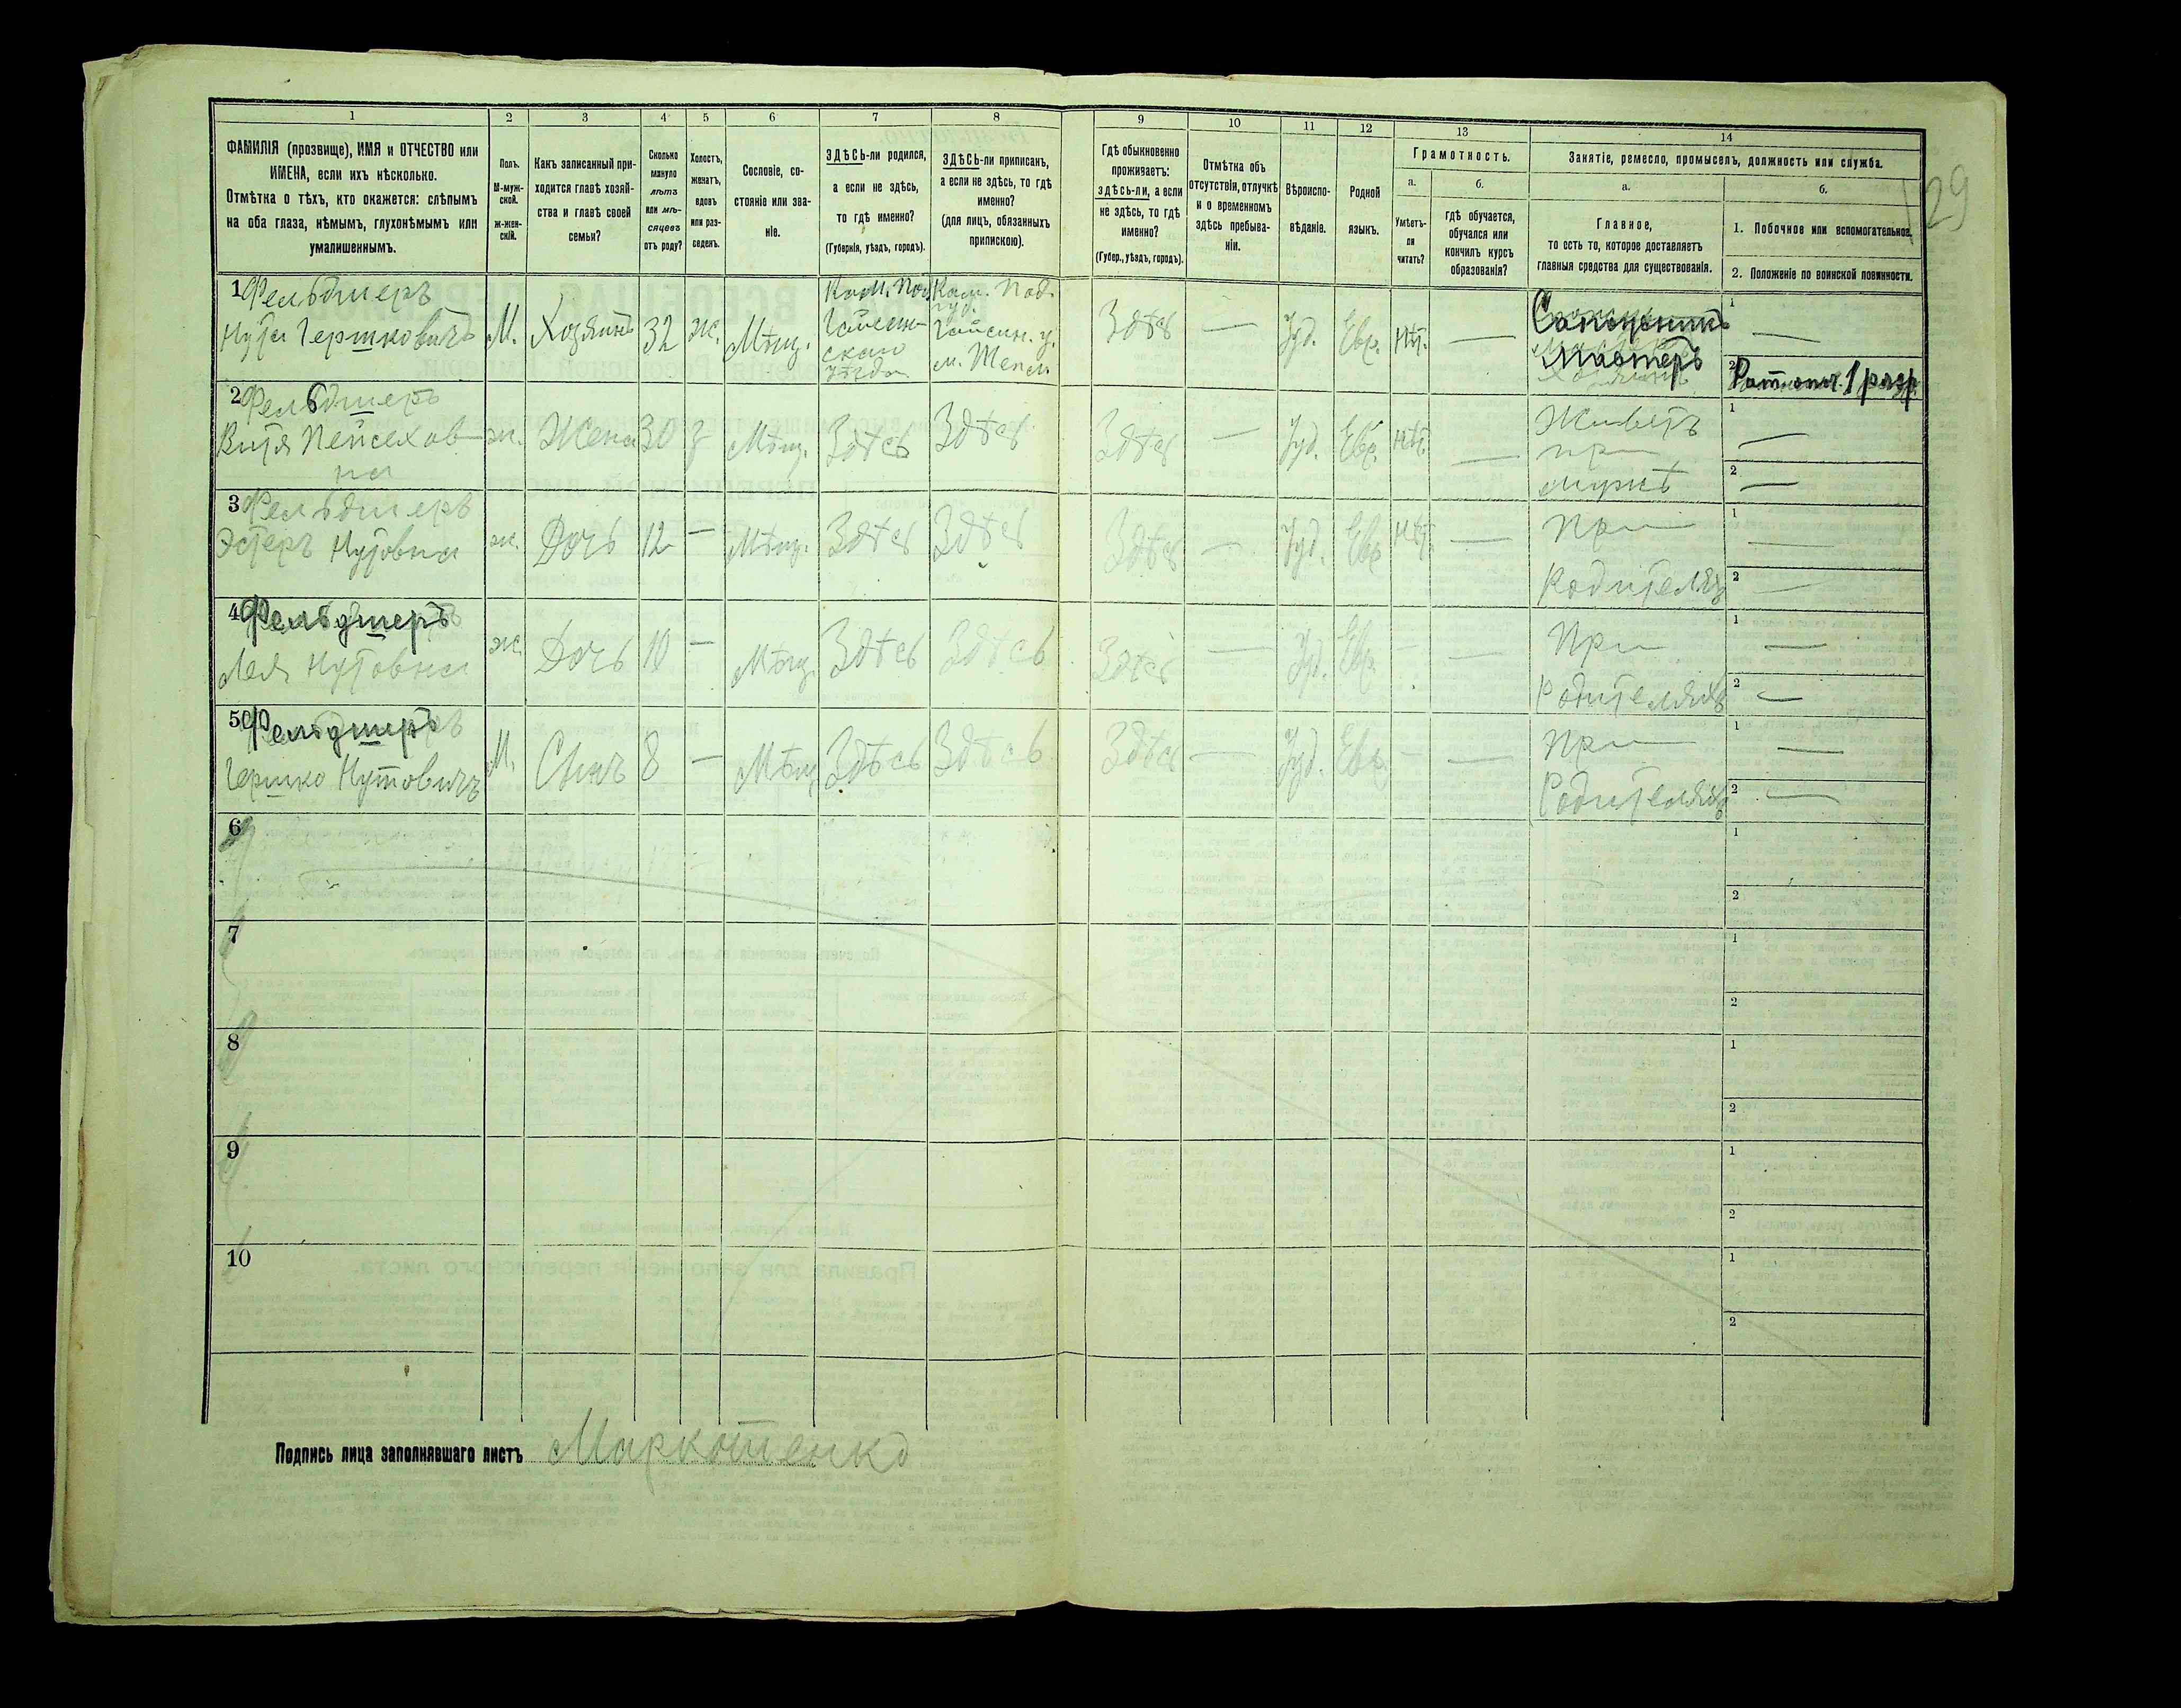 1 2 3 4 5 6 7 8 9 10 11 12 13 14
ФАМИЛІЯ (прозвище), ИМЯ и ОТЧЕСТВО или
ИМЕНА, если ихъ нѣсколько.
Отмѣтка о тѣхъ, кто окажется: слѣпымъ
на оба глаза, нѣмымъ, глухонѣмымъ или
умалишеннымъ.
Полъ.
М-муж-
ской.
ж-жен-
скій.
Какъ записанный при-
ходится главѣ хозяй-
ства и главѣ своей
семьи?
Сколько
минуло
лѣтъ
или мѣ-
сяцевъ
отъ роду?
Холостъ,
женатъ,
вдовъ
или раз-
веденъ.
Сословіе, со-
стояніе или зва-
ніе.
ЗДѢСЬ-ли родился,
а если не здѣсь,
то гдѣ именно?
(Губернія, уѣздъ, городъ).
ЗДѢСЬ-ли приписанъ,
а если не здѣсь, то гдѣ
именно?
(для лицъ, обязанныхъ
припискою).
Гдѣ обыкновенно
проживаетъ:
здѣсь-ли, а если
не здѣсь, то гдѣ
именно?
(Губер., уѣздъ, городъ).
Отмѣтка объ
отсутствіи, отлучкѣ
и о временномъ
здѣсь пребыва-
ніи.
Вѣроиспо-
вѣданіе.
Родной
языкъ.
Грамотность.
а.
Умѣетъ-
ли
читать?
б.
гдѣ обучается,
обучался или
кончилъ курсъ
образованія?
Занятіе, ремесло, промыселъ, должность или служба.
а.
Главное,
то есть то, которое доставляетъ
главныя средства для существованія.
б.
1. Побочное или вспомогательное.
2. Положеніе по воинской повинности.
29
1 Фельдшеръ
Нута Гершковичъ
М.
Хозяинъ
32
Ж.
Мѣщ.
Кам. Под.
Гайсин-
скаго
уѣзда
Кам. Под.
губ.
Гайсин. у.
Здѣсь
—
Іуд.
Евр.
Нѣт.
—
Сапожникъ
Мастеръ
1
—
2 Рат. опол. 1 разр.
2 Фельдшеръ
Витя Пейсехов-
на
ж.
Жена
30
З
Мѣщ.
Здѣсь
Здѣсь
Здѣсь
—
Іуд.
Евр.
Нѣт.
—
Живетъ
при
мужѣ
1
—
2
—
3 Фельдшеръ
Эстеръ Нутовна
ж.
Дочь
12
—
Мѣщ.
Здѣсь
Здѣсь
Здѣсь
—
Іуд.
Евр
Нѣт.
—
При
Родителях
1
—
2
—
4 Фельдшеръ
Лея Нутовна
ж.
Дочь
10
—
Мѣщ.
Здѣсь
Здѣсь
Здѣсь
—
Іуд.
Евр.
—
—
При
Родителяхъ
1
—
2
—
5 Фельдшеръ
Гершко Нутовичъ
М.
Сынъ
8
—
Мѣщ
Здѣсь
Здѣсь
Здѣсь
—
Іуд.
Евр.
—
—
При
Родителяхъ
1
—
2
—
6
1
2
7
1
2
8
1
2
9
1
2
10
1
2
Подпись лица заполнявшаго листъ Маркотенко